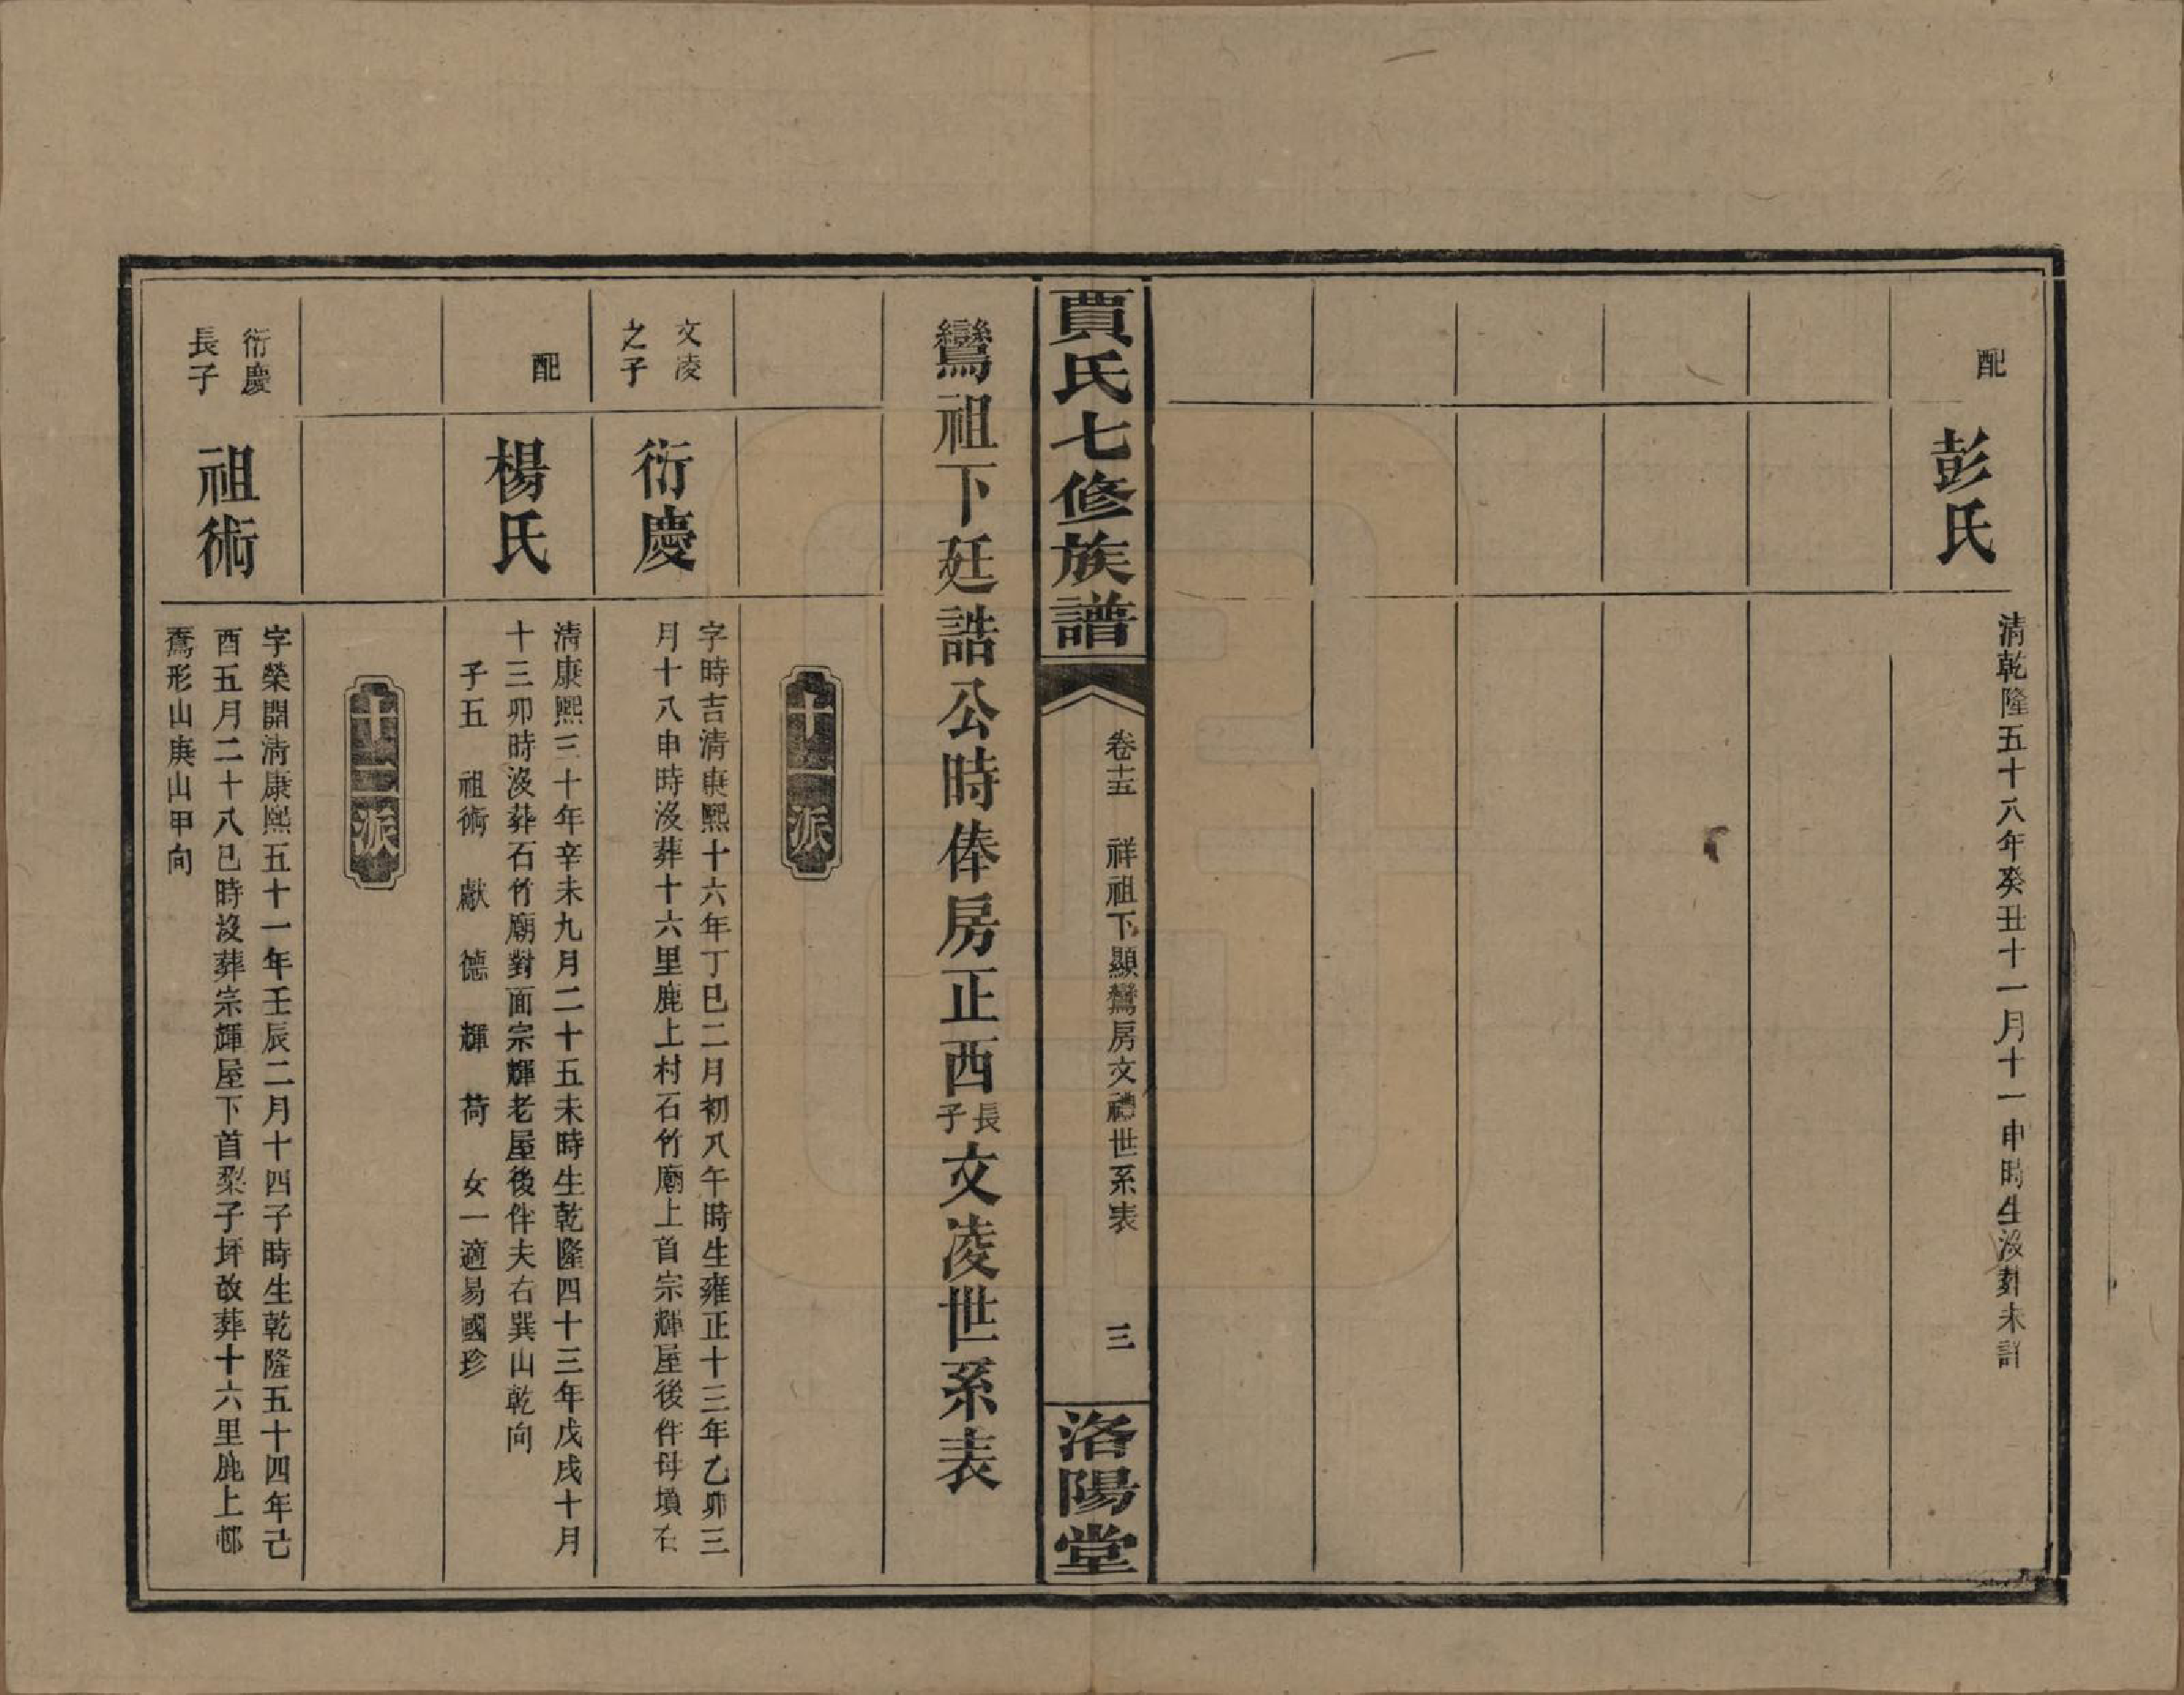 配
彭氏
清乾隆五十八年癸丑十一月十一申時生沒葬未詳
賈氏七修族譜
卷十五 祥祖下顯鸞房文禮世系表 三
洛陽堂
鸞祖下廷誥公時俸房正西長子文凌世系表
十一派
文凌
之子
衍慶
字時吉清康熙十六年丁巳二月初八午時生雍正十三年乙卯三
月十八申時沒葬十六里鹿上村石竹廟上首宗輝屋後伴母墳右
配
楊氏
清康熙三十年辛未九月二十五未時生乾隆四十三年戊戌十月
十三卯時沒葬石竹廟對面宗輝老屋後伴夫右巽山乾向
子五 祖術 獻 德 輝 荷 女一適易國珍
十二派
衍慶
長子
祖術
字榮開清康熙五十一年壬辰二月十四子時生乾隆五十四年己
酉五月二十八巳時沒葬宗輝屋下首梨子坪改葬十六里鹿上邨
形山庚山甲向